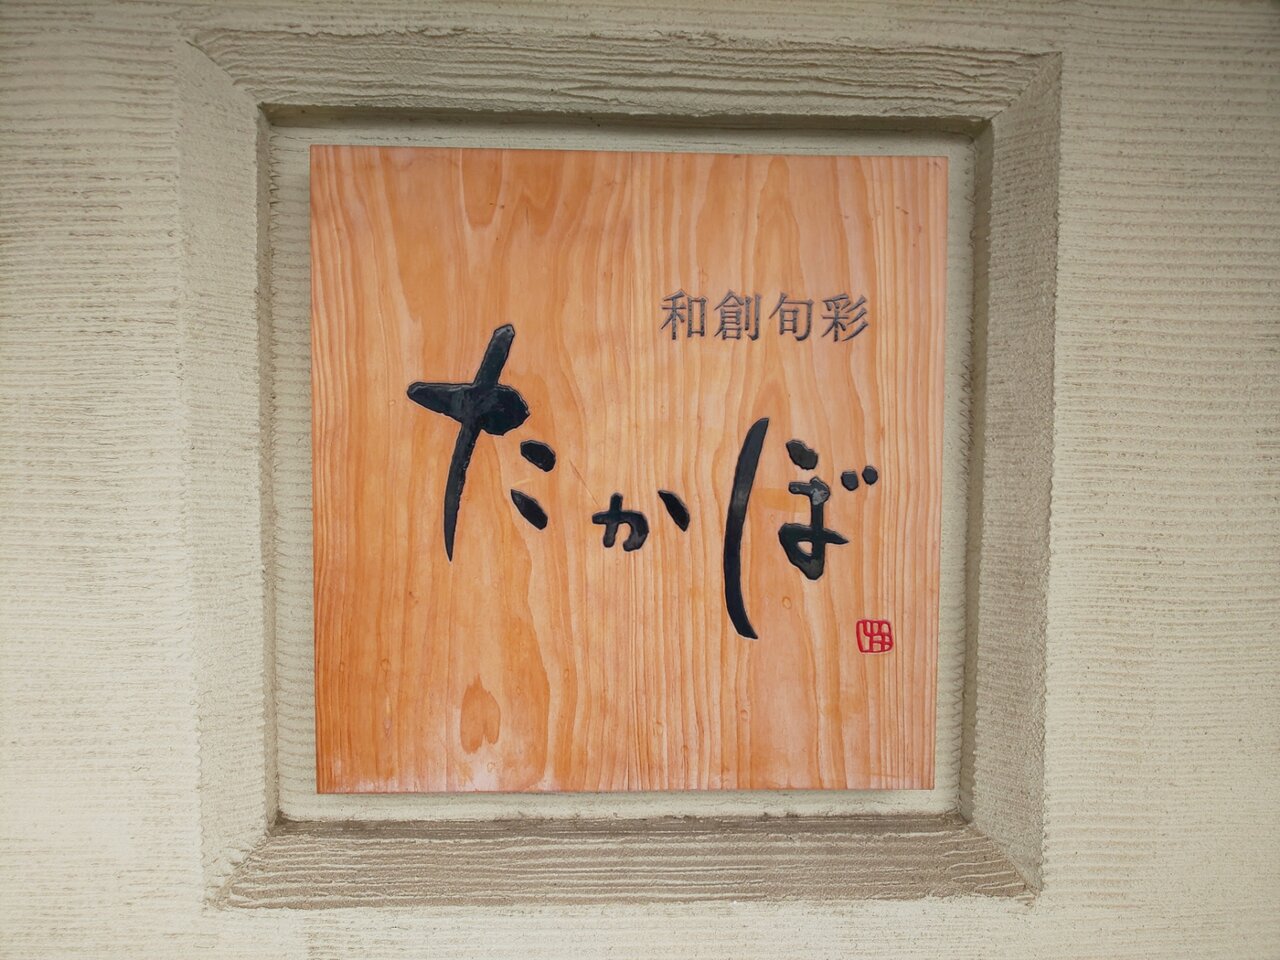 和創旬彩
たかぼ